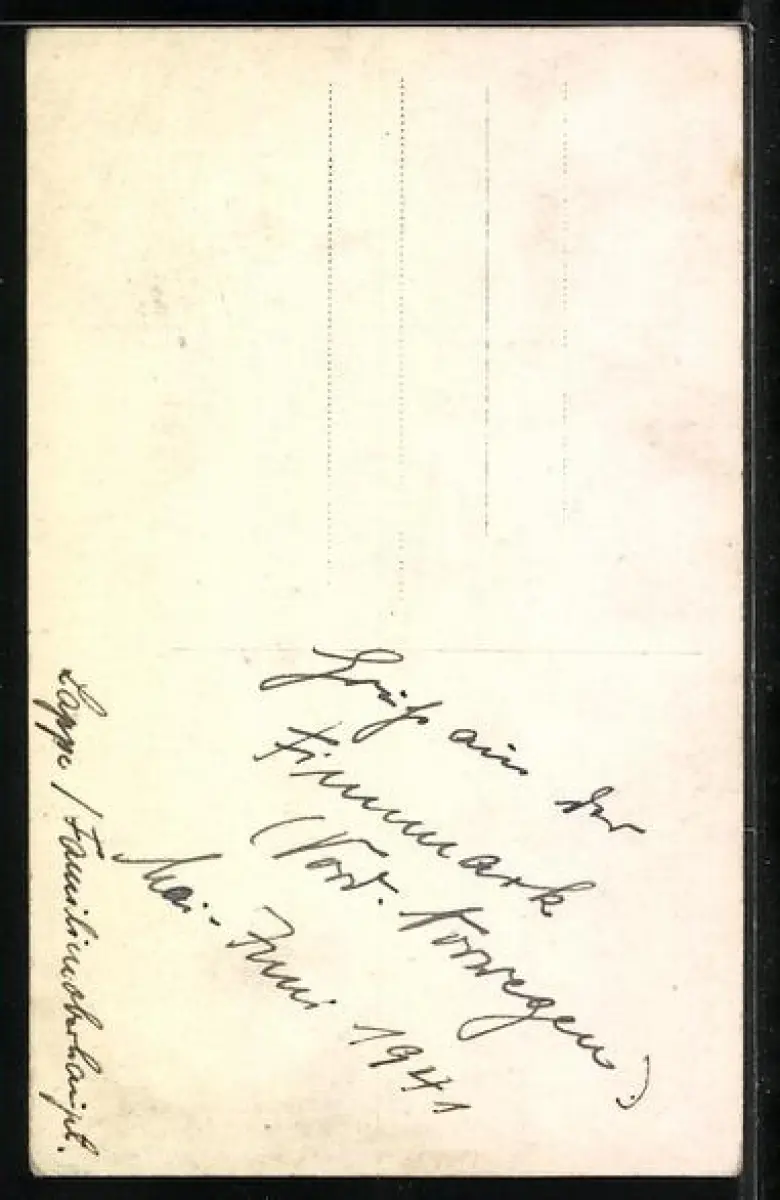 Gruß aus der
Finnmark
(Nord. Norwegen)
Mai-Juni 1941
Lappe / Familienoberhaupt.